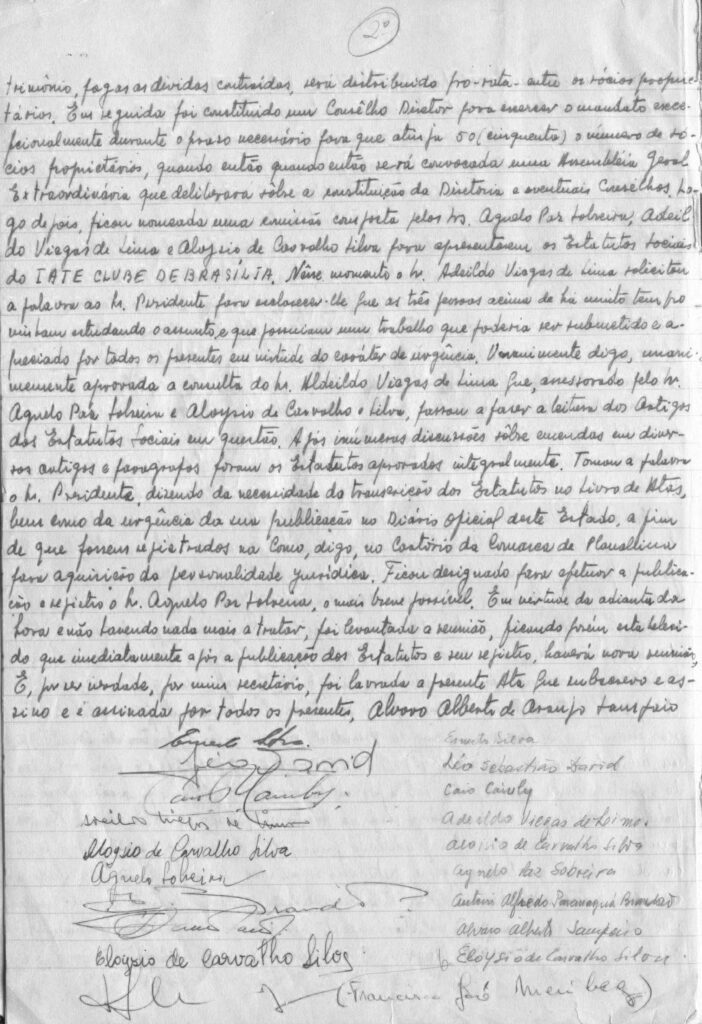 2º
trimônio, pagas as dividas contraídas, será distribuido pro-rata entre os sócios proprie-
tários. Em seguida foi constituído um Consêlho Diretor para exercer o mandato exce-
pcionalmente durante o praso necessário para que atinja 50 (cinquenta) o número de só-
cios proprietários, quando então quando então será convocada uma Assembléia Geral
Extraordinária que deliberará sôbre a constituição da Diretoria e eventuais Conselhos. Lo-
go depois, ficou nomeada uma comissão composta pelos Srs. Agnelo Paz Sobreira, Adeil-
do Viegas de Lima e Aloysio de Carvalho Silva para apresentarem os Estatutos Sociais
do IATE CLUBE DE BRASÍLIA. Nêsse momento o Sr. Adeildo Viegas de Lima solicitou
a palavra ao Sr. Presidente para esclarecer-lhe que as três pessoas acima de há muito tempo
vinham estudando o assunto, e que possuiam um trabalho que poderia ser submetido e a-
preciado por todos os presentes em virtude do caráter de urgência. Unanimente digo, unani-
memente aprovada a consulta do Sr. Aldeildo Viegas de Lima que, assessorado pelo Sr.
Agnelo Paz Sobreira e Aloysio de Carvalho e Silva, passou a fazer a leitura dos Artigos
dos Estatutos Sociais em questão. Após inúmeras discussões sôbre emendas em diver-
sos artigos e paragrafos foram os Estatutos aprovados integralmente. Tomou a palavra
o Sr. Presidente, dizendo da necessidade da transcrição dos Estatutos no Livro de Atas,
bem como da urgência da sua publicação no Diário Oficial deste Estado, a fim
de que fossem registrados na Como, digo, no Cartório da Comarca de Planaltina
para aquisição da personalidade jurídica. Ficou designado para efetuar a publica-
ção e registro o Sr. Agnelo Paz Sobreira, o mais breve possível. Em virtude da adiantada
hora e não havendo nada mais a tratar, foi levantada a reunião, ficando porém estabeleci-
do que imediatamente após a publicação dos Estatutos e seu registro, haverá nova reunião.
E, por ser verdade, por mim secretário, foi lavrada a presente Ata que subscrevo e as-
sino e é assinada por todos os presentes, Alvaro Alberto de Araujo Sampaio
Ernesto Silva. Ernesto Silva
Leo David Léo Sebastião David
Caio Cauby
Adeildo Viegas de Lima Adeildo Viegas de Lima.
Aloysio de Carvalho Silva Aloisio de Carvalho Silva
Agnelo Sobreira Agnelo Paz Sobreira
Brandão ? Antonio Alfredo Paranaguá Brandão
Alvaro Alberto Sampaio
Eloysio de Carvalho Silva Eloysio de Carvalho Silva
(Francisco José Meinberg)